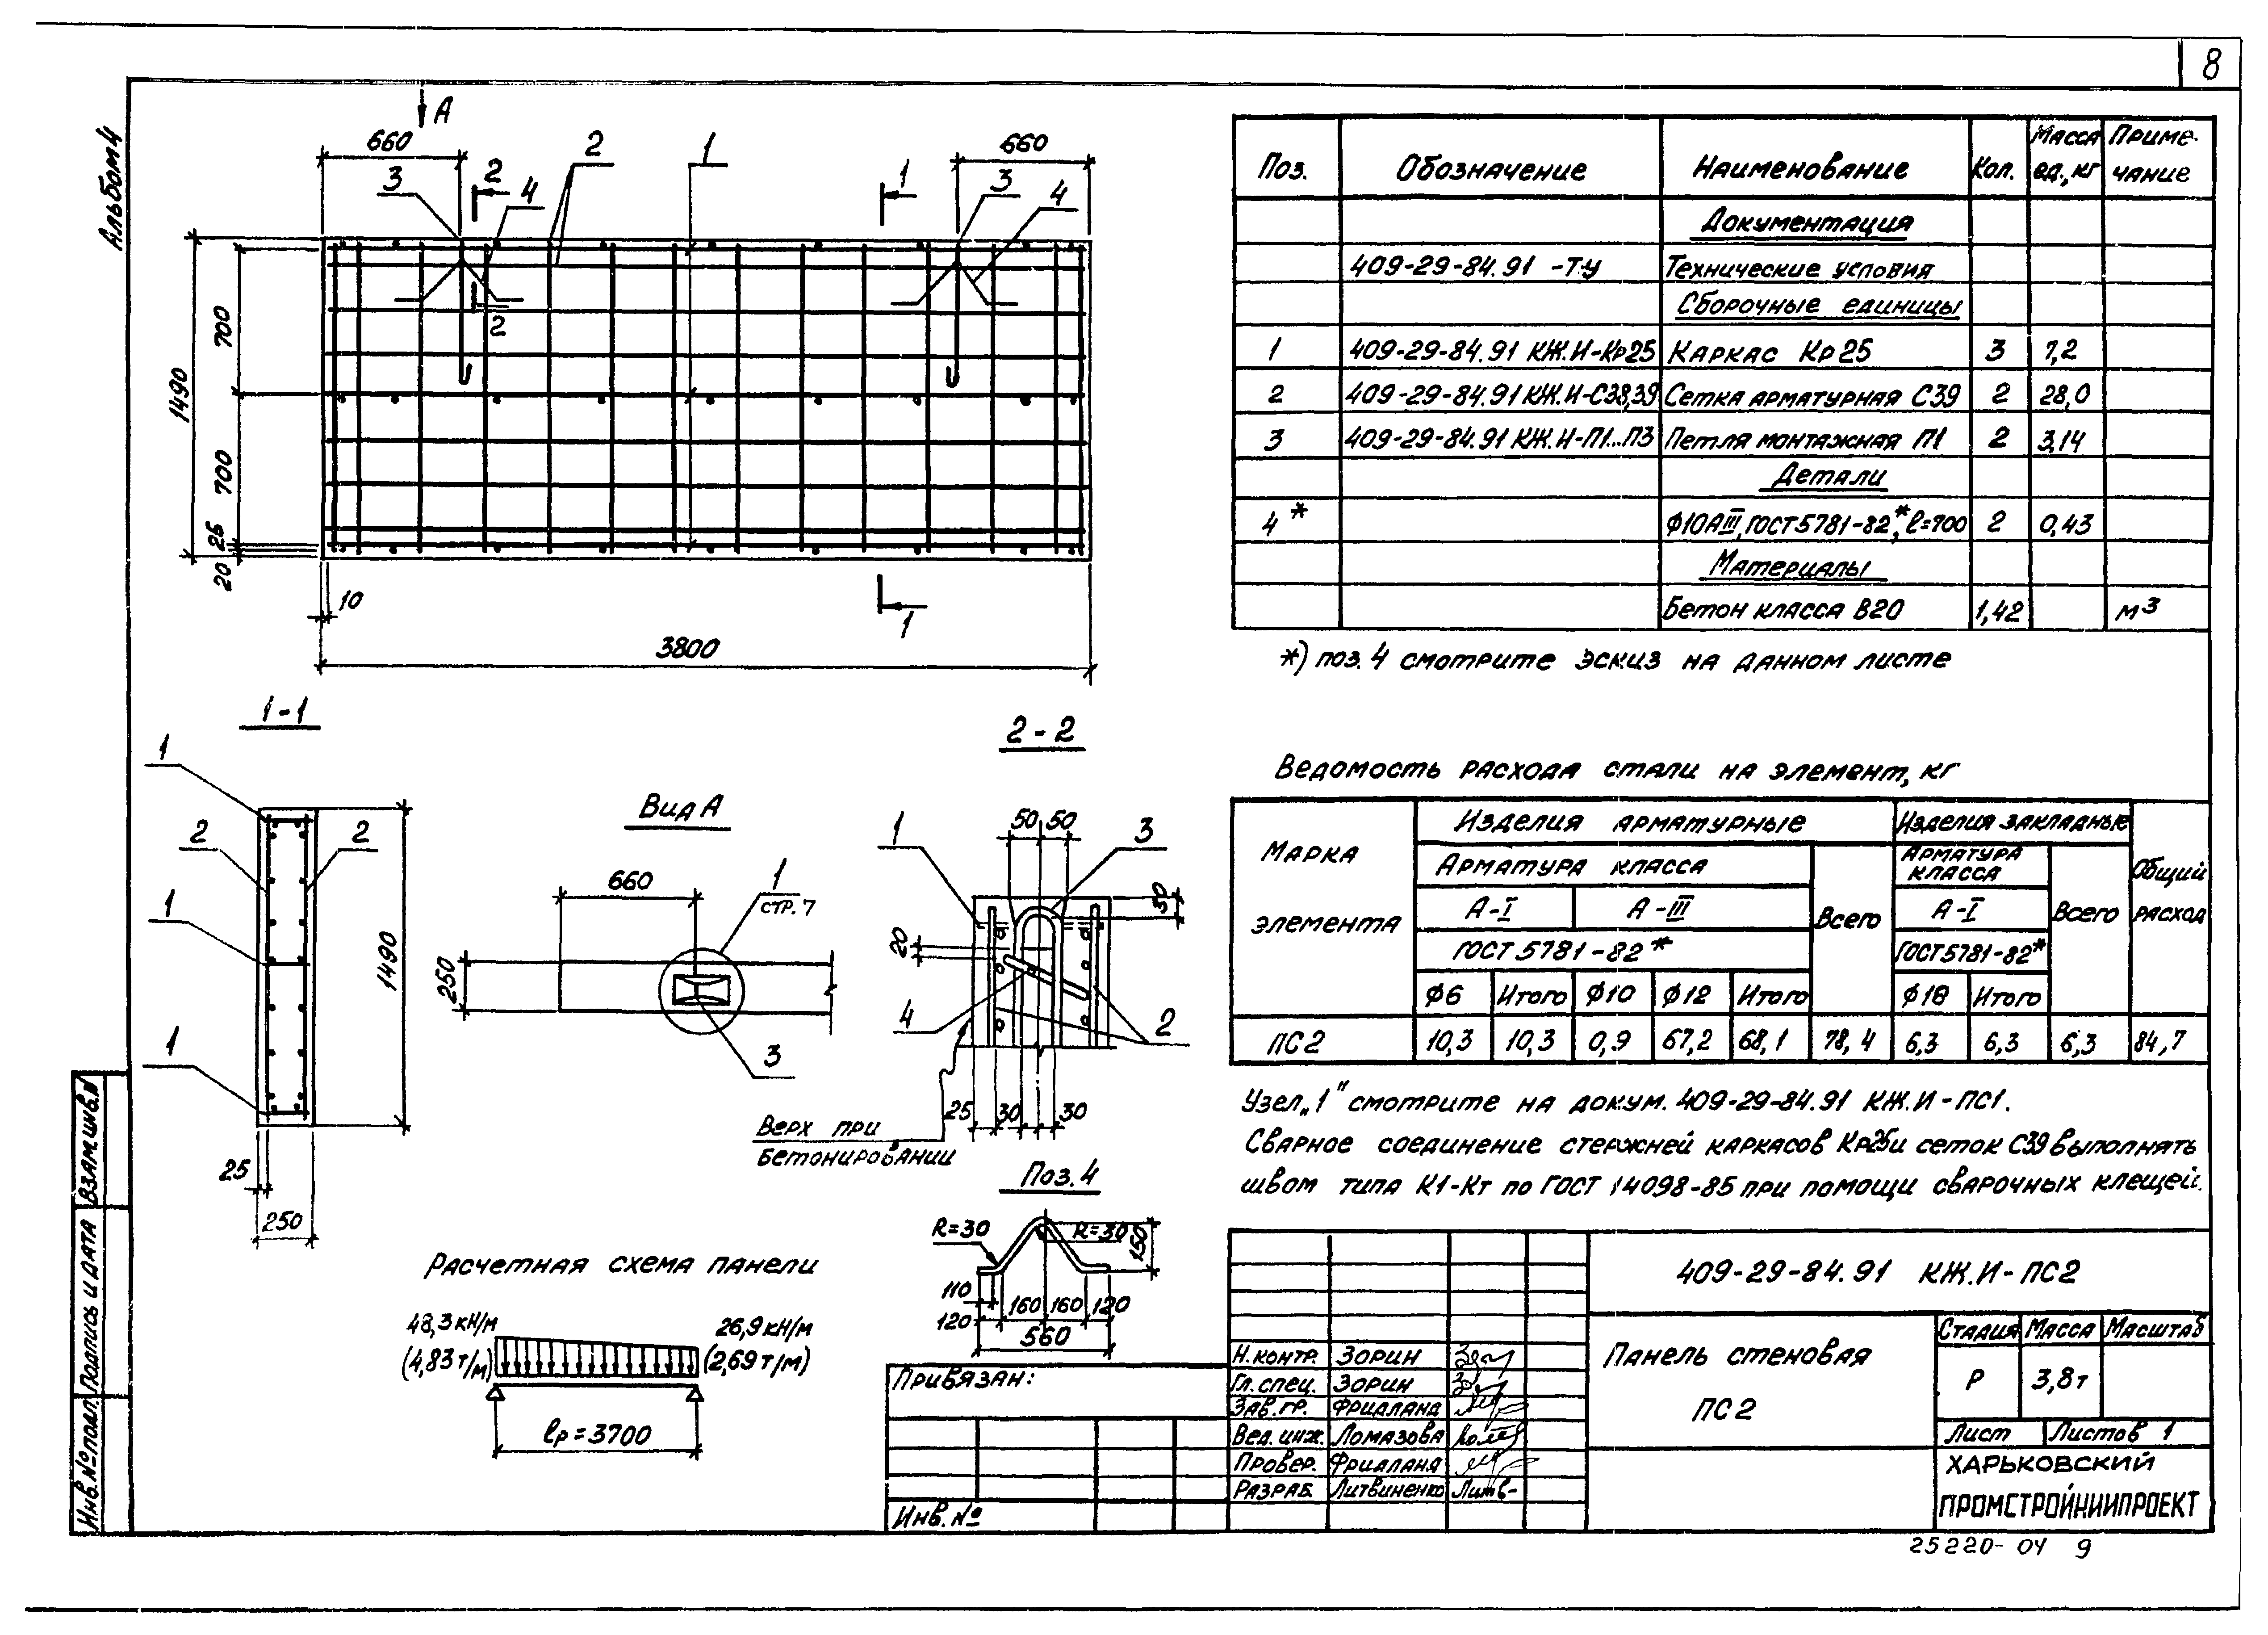 8
Альбом 4
А
660
660
3
2
4
2
1
1
3
4
2
1490
700
700
26
20
10
3800
1
1-1
1
2
2
1
1
1490
25
250
Вид А
660
1
стр. 7
250
3
2-2
50 50
1
3
50
20
4
2
25
30
30
Верх при
бетонировании
Поз. 4
R=30
R=30
150
110
120
160
160
120
560
Расчетная схема панели
48,3 кН/м
(4,83 т/м)
26,9 кН/м
(2,69 т/м)
lр=3700
Поз. Обозначение Наименование Кол. Масса ед., кг Примечание
Документация
409-29-84.91 -ТУ Технические условия
Сборочные единицы
1 409-29-84.91 КЖ.И-Кр25 Каркас Кр25 3 7,2
2 409-29-84.91 КЖ.И-С38,39 Сетка арматурная С39 2 28,0
3 409-29-84.91 КЖ.И-П1...П3 Петля монтажная П1 2 3,14
Детали
4* ф10АIII, ГОСТ 5781-82*, l=700 2 0,43
Материалы
Бетон класса В20 1,42 м3
*) поз. 4 смотрите эскиз на данном листе
Ведомость расхода стали на элемент, кг
Марка элемента
Изделия арматурные
Изделия закладные
Общий расход
Арматура класса
Всего
Арматура класса
Всего
А-I А-III
А-I
ГОСТ 5781-82*
ГОСТ 5781-82*
ф6 Итого ф10 ф12 Итого ф18 Итого
ПС2 10,3 10,3 0,9 67,2 68,1 78,4 6,3 6,3 6,3 84,7
Узел „1" смотрите на докум. 409-29-84.91 КЖ.И-ПС1.
Сварное соединение стержней каркасов Кр25 и сеток С39 выполнять
швом типа К1-Кт по ГОСТ 14098-85 при помощи сварочных клещей.
409-29-84.91 КЖ.И-ПС2
Панель стеновая
ПС2
Стадия Масса Масштаб
Р 3,8т
Лист Листов 1
ХАРЬКОВСКИЙ
ПРОМСТРОЙНИИПРОЕКТ
Н.контр. Зорин
Гл.спец. Зорин
Зав.гр. Фридланд
Вед.инж. Ломазова
Провер. Фридланд
Разраб. Литвиненко
Привязан:
Инв.№
Инв.№ подл. Подпись и дата Взам.инв.№
25220-04 9